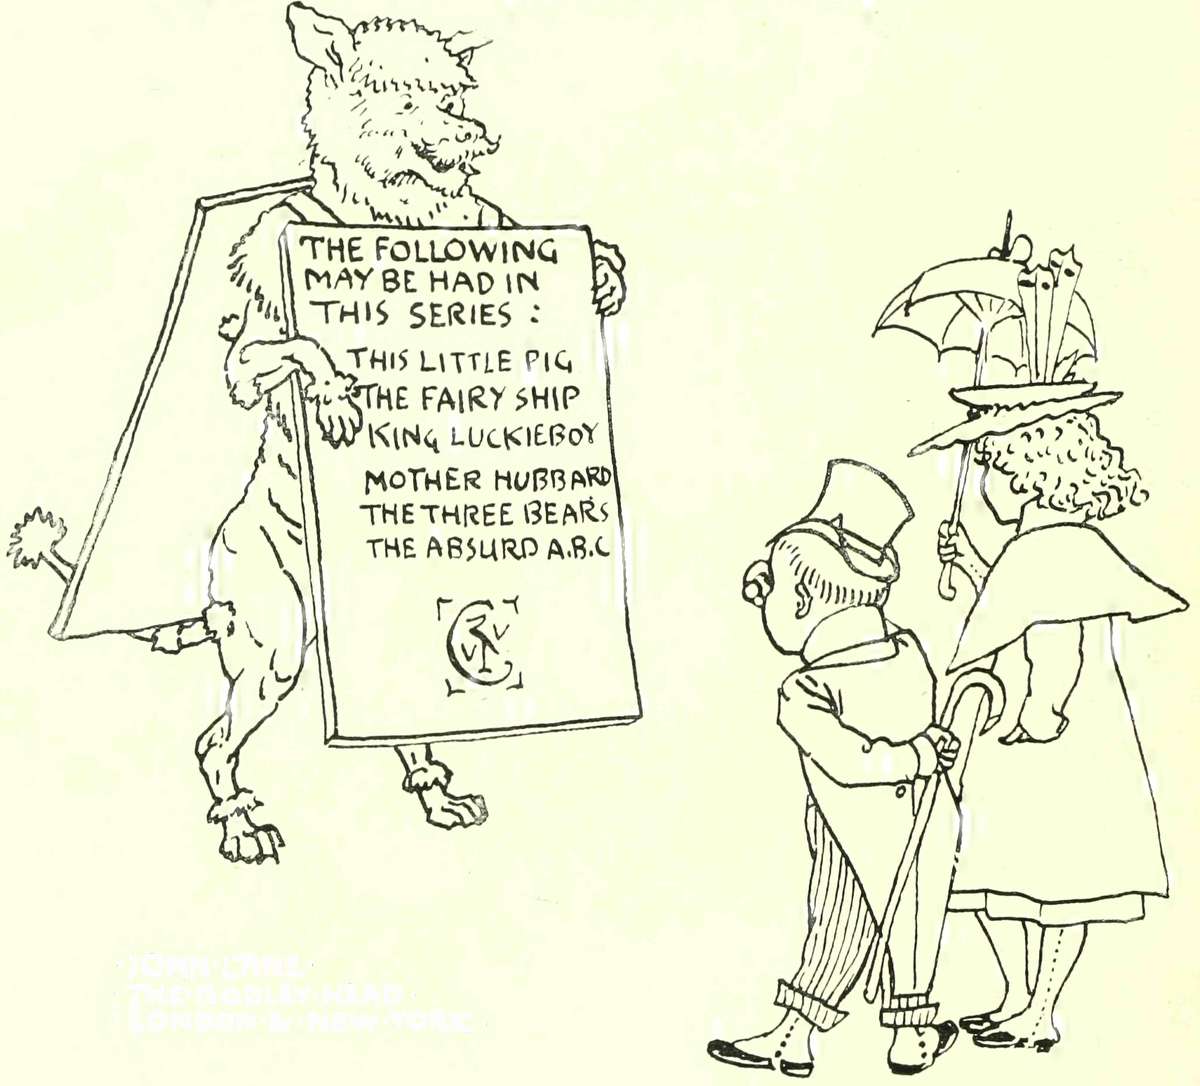 THE FOLLOWING
MAY BE HAD IN
THIS SERIES :
THIS LITTLE PIG
THE FAIRY SHIP
KING LUCKIEBOY
MOTHER HUBBARD
THE THREE BEARS
THE ABSURD A.B.C
JOHN·LANE
THE·BODLEY·HEAD
LONDON·&·NEW·YORK